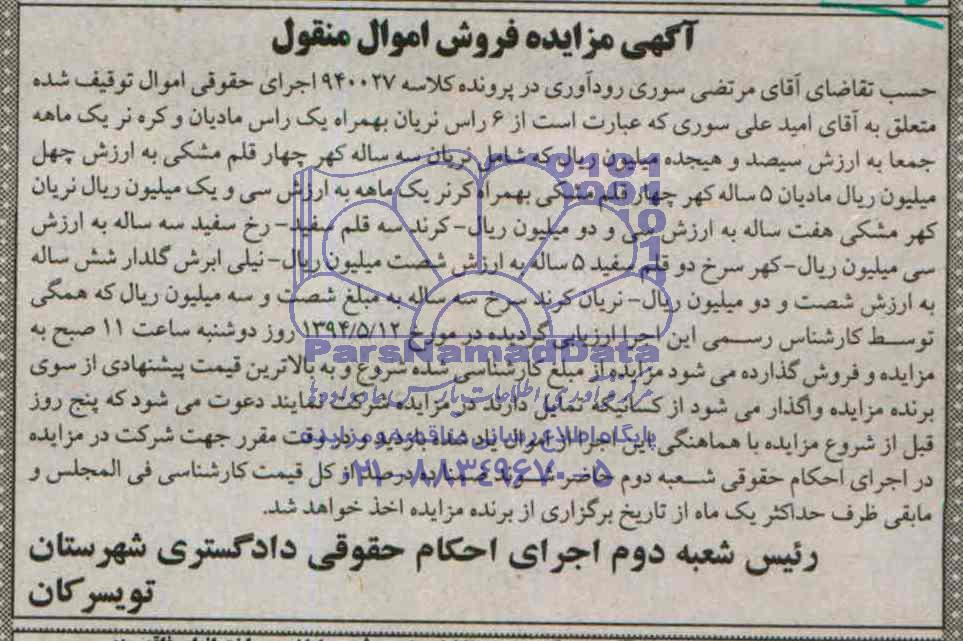 آگهی مزایده فروش اموال منقول
حسب تقاضای آقای مرتضی سوری رودآوری در پرونده کلاسه ۹۴۰۰۲۷ اجرای حقوقی اموال توقیف شده
متعلق به آقای امید علی سوری که عبارت است از ۶ راس نریان بهمراه یک راس مادیان و کره نر یک ماهه
جمعا به ارزش سیصد و هیجده میلیون ریال که شامل نریان سه ساله کهر چهار قلم مشکی به ارزش چهل
میلیون ریال مادیان ۵ ساله کهر چهار قلم مشکی بهمراه کرنر یک ماهه به ارزش سی و یک میلیون ریال نریان
کهر مشکی هفت ساله به ارزش سی و دو میلیون ریال- کرند سه قلم سفید- رخ سفید سه ساله به ارزش
سی میلیون ریال-کهر سرخ دو قلم سفید ۵ ساله به ارزش شصت میلیون ریال-نیلی ابرش گلدار شش ساله
به ارزش شصت و دو میلیون ریال- نریان کرند سرخ سه ساله به مبلغ شصت و سه میلیون ریال که همگی
توسط کارشناس رسمی این اجرا ارزیابی گردیده در مورخ ۱۳۹۴/۵/۱۲ روز دوشنبه ساعت ۱۱ صبح به
مزایده و فروش گذارده می شود مزایده از مبلغ کارشناسی شده شروع و به بالاترین قیمت پیشنهادی از سوی
برنده مزایده واگذار می شود از کسانیکه تمایل دارند در مزایده شرکت نمایند دعوت می شود که پنج روز
قبل از شروع مزایده با هماهنگی این اجرا از اموال یاد شده بازدید و در وقت مقرر جهت شرکت در مزایده
در اجرای احکام حقوقی شعبه دوم حاضر شوند ضمنا ده درصد از کل قیمت کارشناسی فی المجلس و
مابقی ظرف حداکثر یک ماه از تاریخ برگزاری از برنده مزایده اخذ خواهد شد.
رئیس شعبه دوم اجرای احکام حقوقی دادگستری شهرستان
تویسرکان
ParsNamadData
پایگاه اطلاع رسانی مناقصه و مزایده
۰۲۱-۸۸۳۴۹۶۷۰-۵